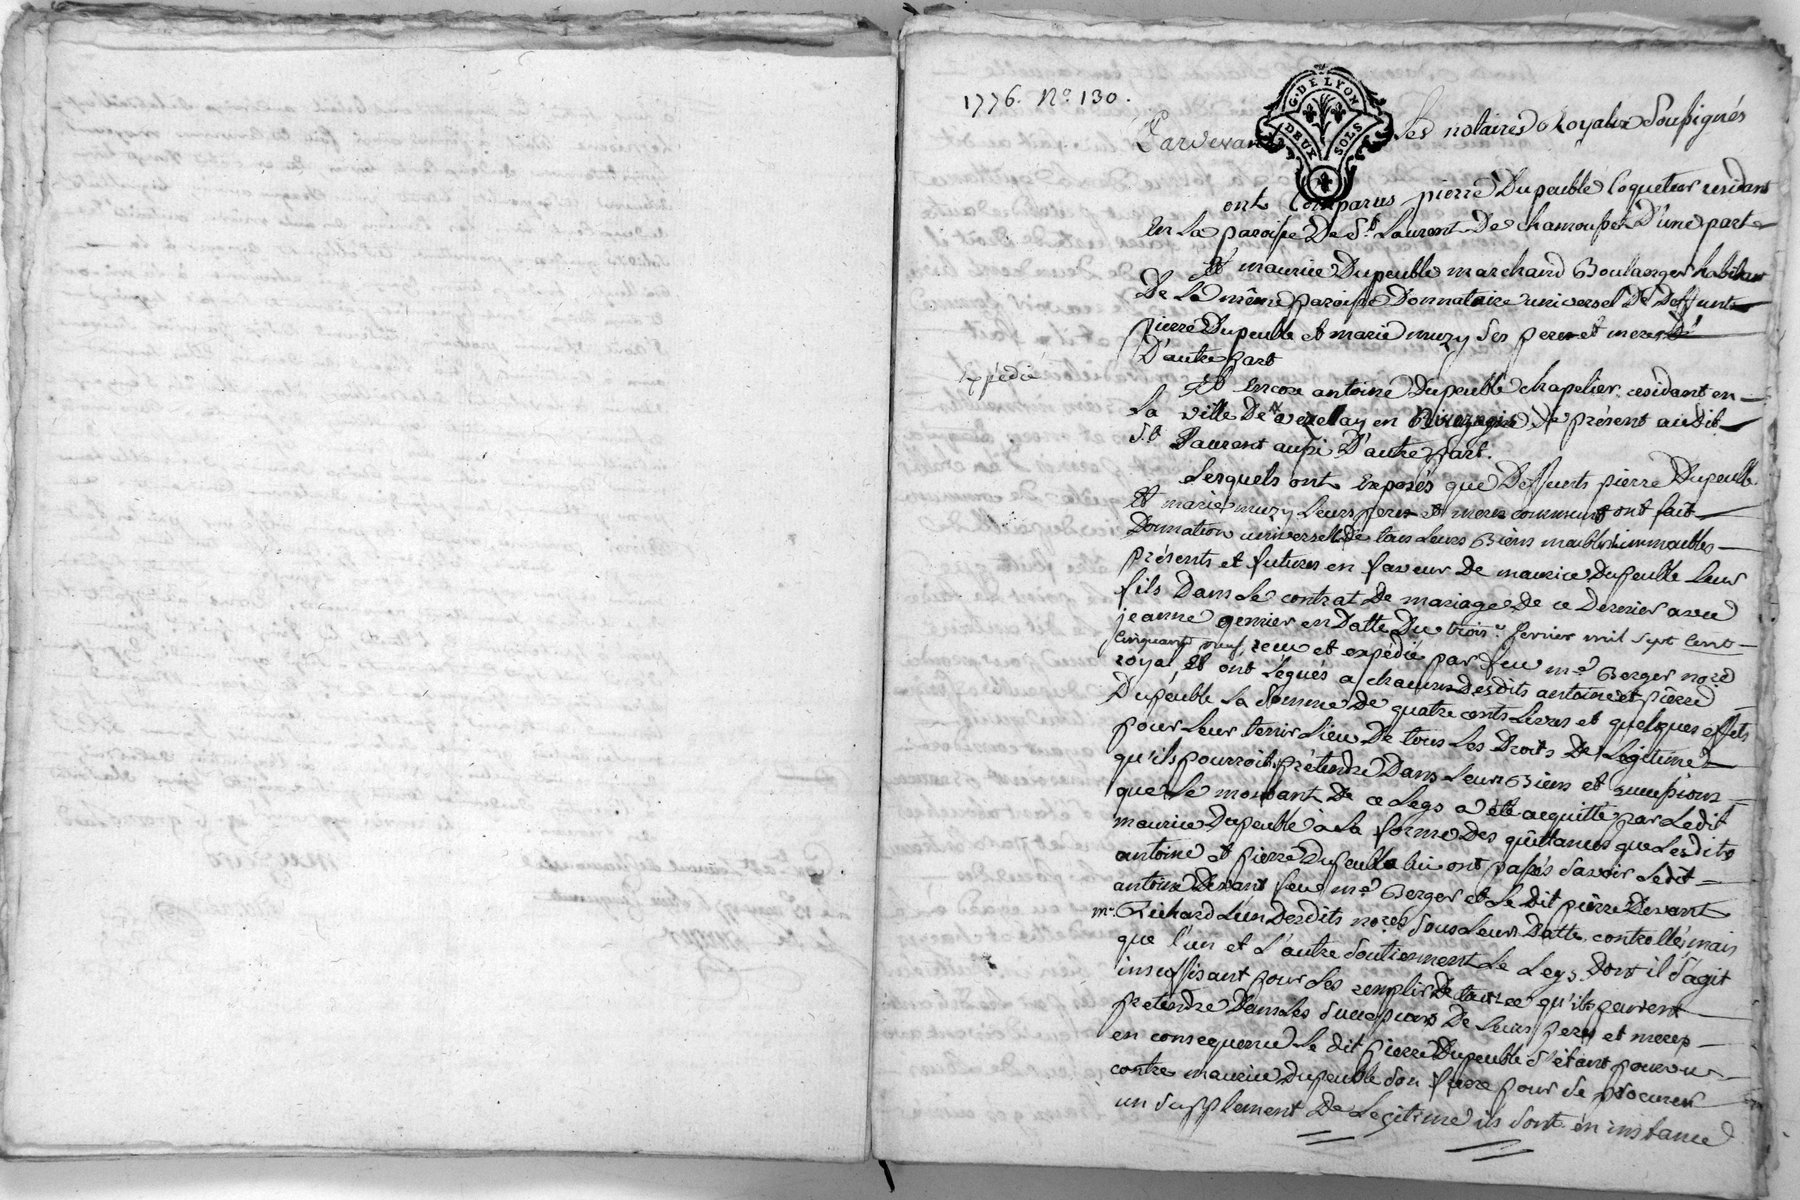 1776. No. 130.
G. DE LYON
DEUX SOLS
Pardevant Les notaires Royaux Soussignés
ont Comparus pierre Dupeuble Coquetier residant
en La paroisse De St. Laurent De chamousset D'une part
Et maurice Dupeuble marchand Boulanger habitant
De La même paroisse Donnataire universel De Deffunts
pierre Dupeuble et marie muzy Ses pere et mere
D'autre part
Expédié
Et Encore antoine Dupeuble chapelier residant en
La ville De verzelay en De présent audit
St. Laurent aussi D'autre part.
Lesquels ont Exposés que Deffunts pierre Dupeuble
Et marie muzy Leurs pere et mere communs ont fait
Donnation universelle De tous Leurs Biens meubles immeubles
présents et futures en faveur De maurice Dupeuble Leur
fils Dans Le contrat De mariage De ce Dernier avec
jeanne grenier en Datte Du trois.e fevrier mil sept Cent
Cinquante neuf, recu et expédié par feu me Berger nore
royal Et ont Légués a chacuns Desdits antoine et pierre
Dupeuble La Somme De quatre cents Livres et quelques effets
pour Leur tenir Lieu De tous Les Droits De Légitime
qu'ils pourroits prétendre Dans Leurs Biens et successions
que Le montant De ce Legs a été acquitté par Ledit
maurice Dupeuble a La forme Des quittances que Lesdits
antoine et pierre Dupeuble lui ont passés Savoir Ledit
antoine Devant feu me Berger et Le Dit pierre Devant
me Richard L'un Desdits nores Sous Leurs Datte, controllé, mais
que l'un et L'autre Soutiennent Le Legs Dont il S'agit
insuffisant pour Les remplir De tout ce qu'ils peuvent
pretendre Dans Les Successions De Leurs peres et meres
en consequence Le dit pierre Dupeuble S'étant pourvu
contre maurice Dupeuble Son frere pour Se procurer
un Supplement De Legitime ils Sont en instance